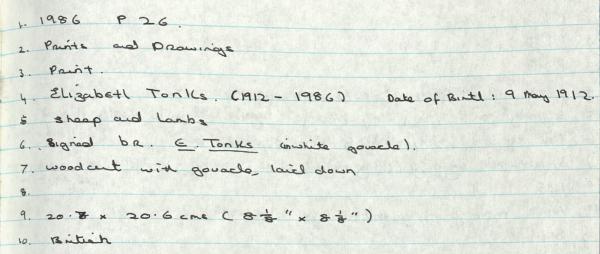 1. 1986 P 26.
2. Prints and Drawings
3. Print.
4. Elizabeth Tonks. (1912 - 1986) Date of Birth : 9 May 1912.
5 Sheep and Lambs
6. Signed b.R. E. Tonks (in white gouache).
7. Woodcut with gouache, laid down
8.
9. 20.8 x 20.6 cms ( 8 1/8 " x 8 1/8 " )
10. British